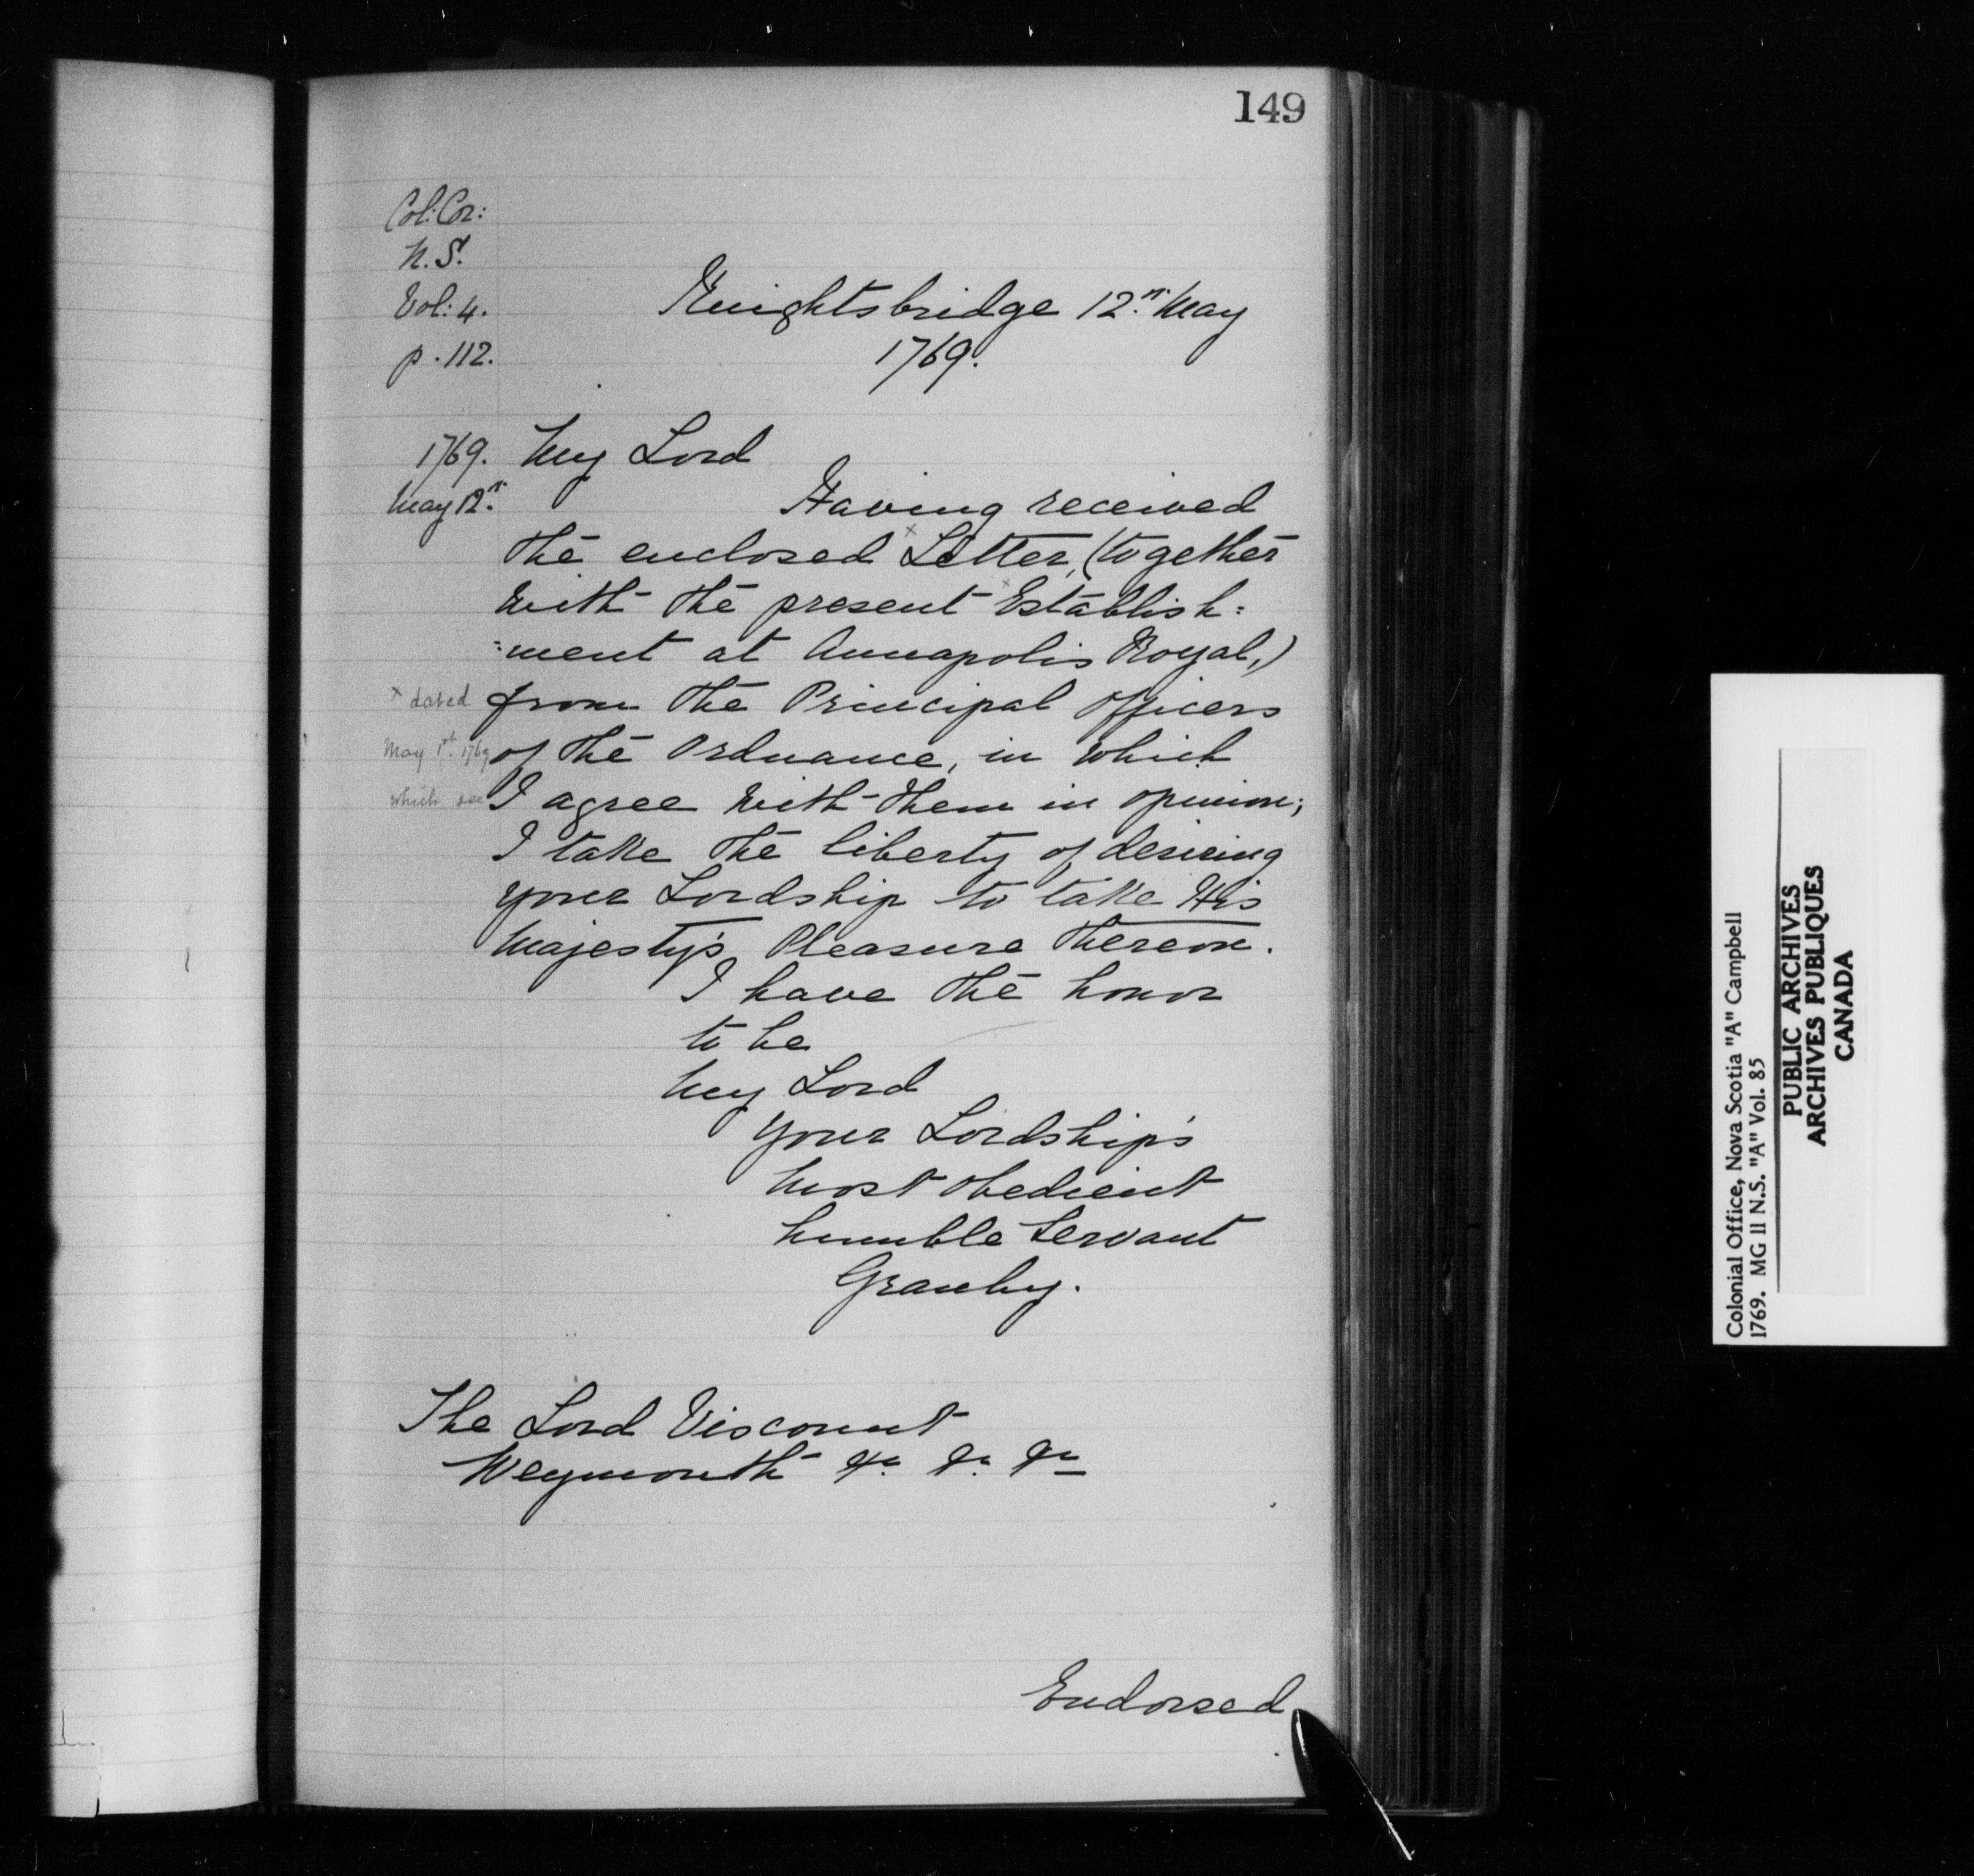 149
Col: Cor:
N.S.
Vol: 4.
p. 112.
Knightsbridge 12th. May
1769.
1769.
May 12th.
My Lord
Having received
the enclosed x Letter, (together
with the present x Establish:
:ment at Annapolis Royal,)
from the Principal officers
of the Ordnance, in which
I agree with them in opinion;
I take the liberty of desiring
your Lordship to take His
Majesty's Pleasure thereon.
x dated
May 1st. 1769
which see
I have the honor
to be
My Lord
Your Lordship's
most obedient
humble Servant
Granby.
The Lord Viscount
Weymouth &c. &c. &c
Endorsed
Colonial Office, Nova Scotia "A" Campbell
1769. MG 11 N.S. "A" Vol. 85
PUBLIC ARCHIVES
ARCHIVES PUBLIQUES
CANADA